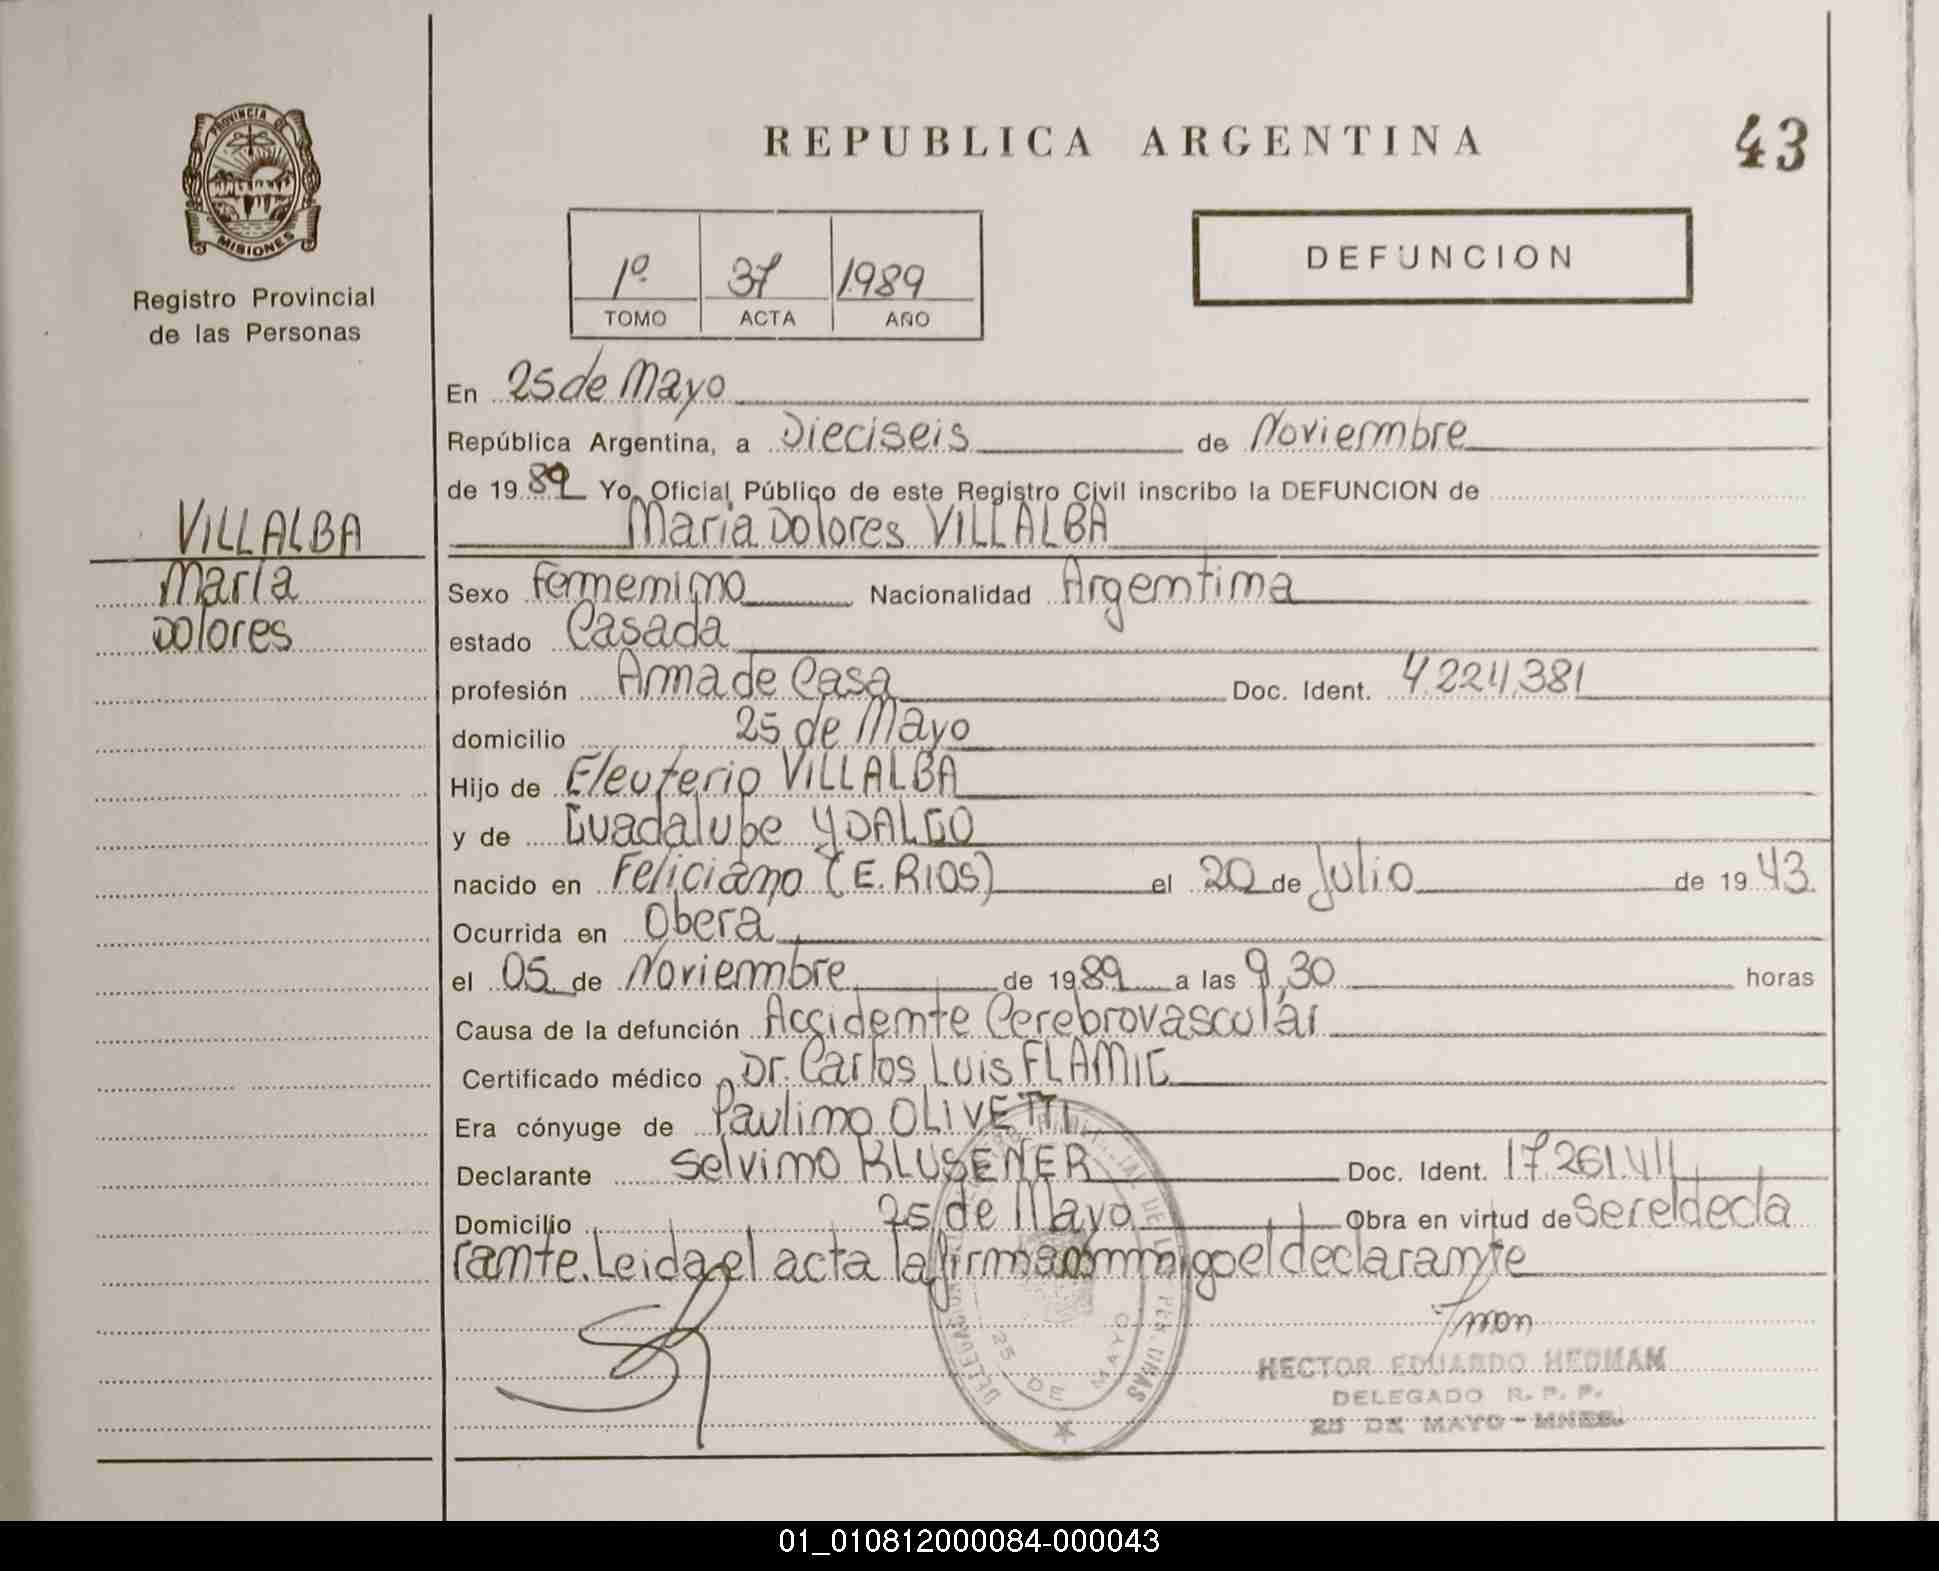 PROVINCIA DE
MISIONES
Registro Provincial
de las Personas
VILLALBA
María
Dolores
REPUBLICA ARGENTINA
43
1º 37 1989
TOMO ACTA AÑO
DEFUNCION
En 25 de Mayo
República Argentina, a Dieciseis de Noviembre
de 1989 Yo, Oficial Público de este Registro Civil inscribo la DEFUNCION de
Maria Dolores VILLALBA
Sexo Femenino Nacionalidad Argentina
estado Casada
profesión Ama de Casa Doc. Ident. 4.224.381
domicilio 25 de Mayo
Hijo de Eleuterio VILLALBA
y de Guadalupe YDALGO
nacido en Feliciano (E. RIOS) el 20 de Julio de 1943.
Ocurrida en Oberá
el 05 de Noviembre de 1989 a las 9,30 horas
Causa de la defunción Accidente Cerebrovascular
Certificado médico Dr. Carlos Luis FLAMIG
Era cónyuge de Paulino OLIVETTI
Declarante Selvino KLUSENER Doc. Ident. 17.261.411
Domicilio 25 de Mayo Obra en virtud de ser el decla
rante. Leida el acta la firma conmigo el declarante
25 DE MAYO
HECTOR EDUARDO HEDMAM
DELEGADO R. P. P.
25 DE MAYO - MNES.
01_010812000084-000043